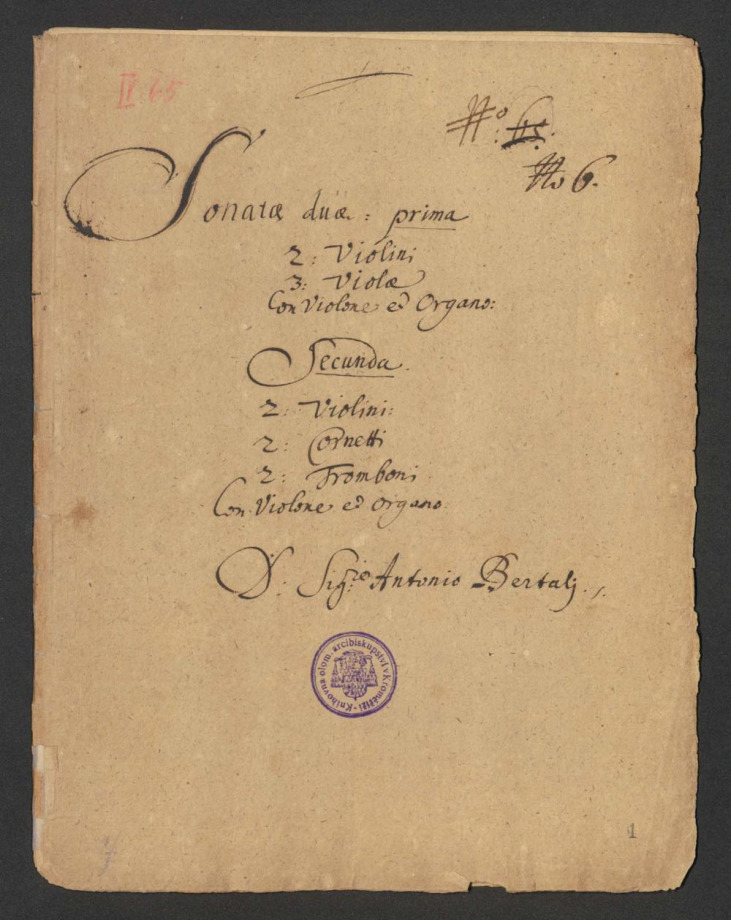 IV 65
No: 65.
No 6.
Sonatæ duæ: prima
2: Violini
3: Violæ
Con Violone ed Organo:
Secunda.
2: Violini:
2: Cornetti
2: Tromboni
Con Violone ed organo
D: Sig:re Antonio Bertalj.
Knihovna olom. arcibiskupství v Kroměříži
1